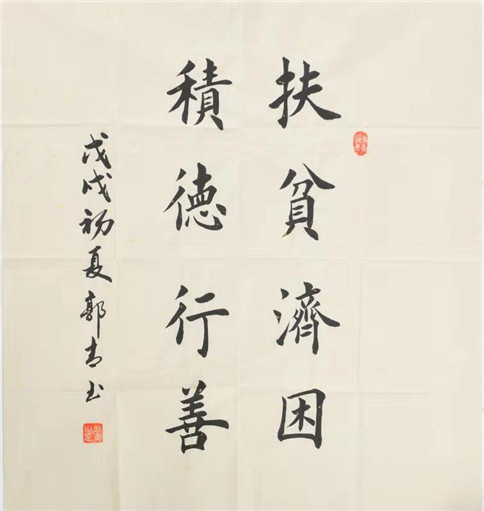 扶貧濟困
積德行善
戊戌初夏郭志书